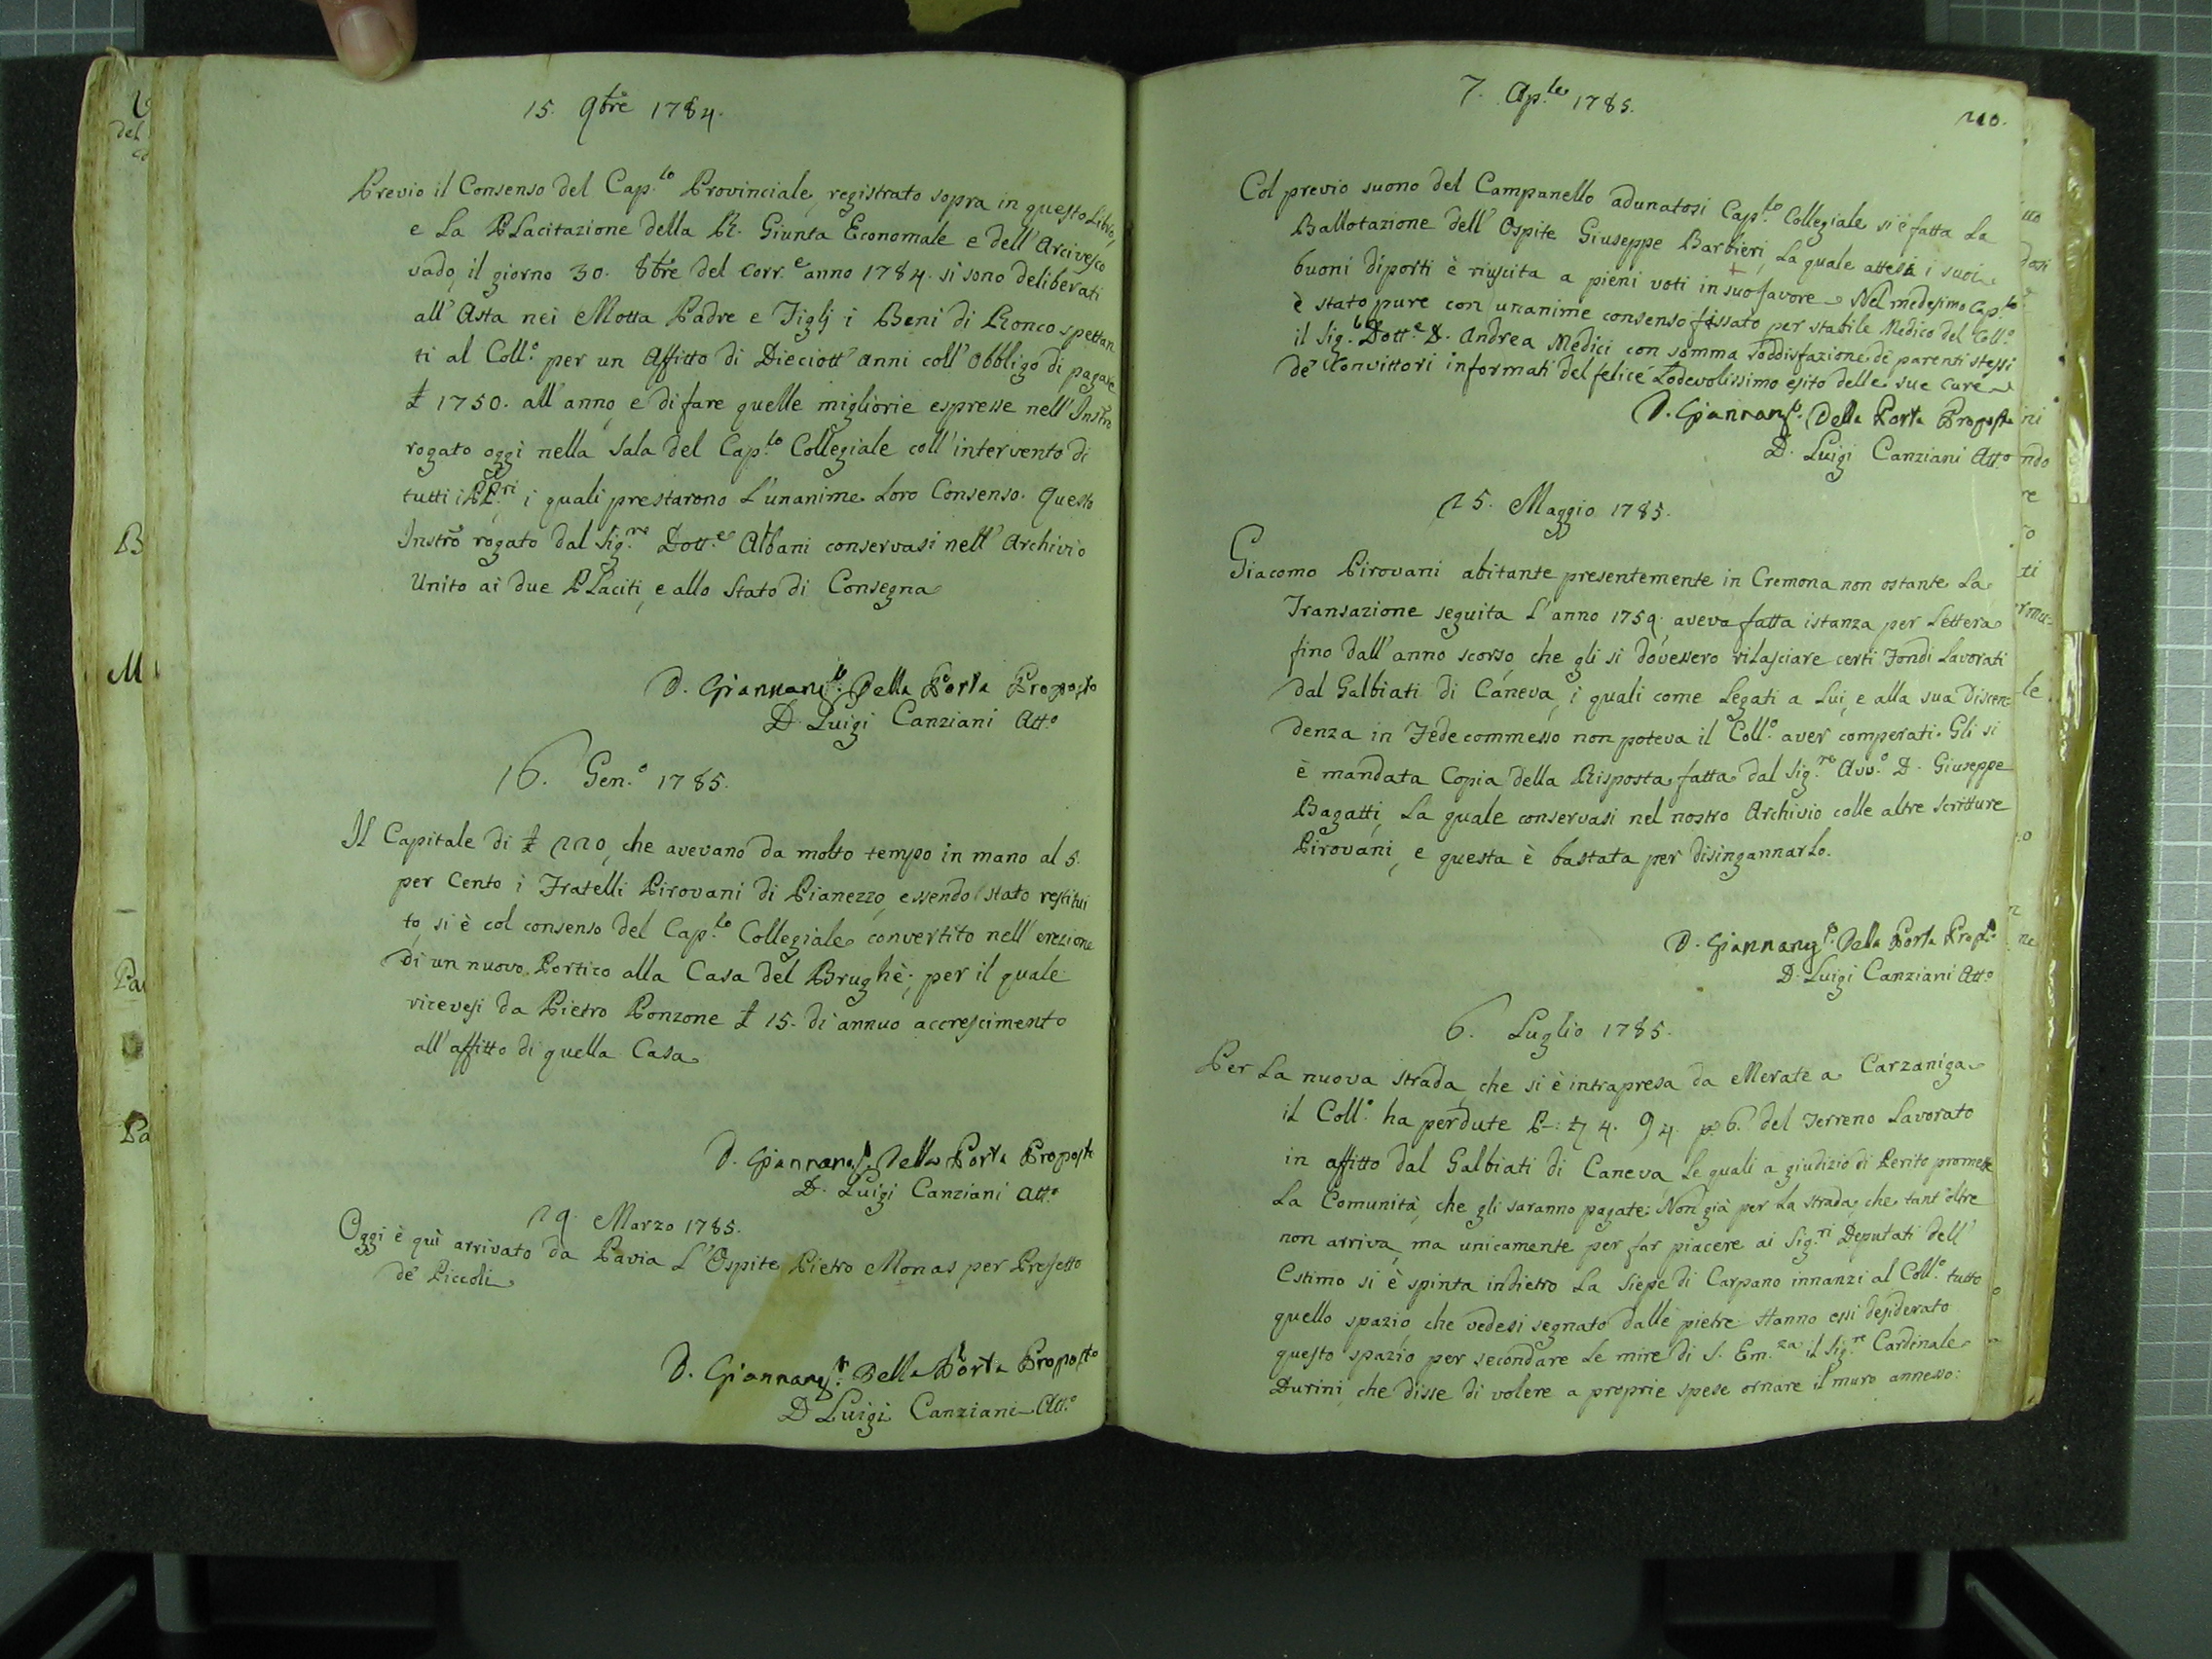 15. 9bre 1784.
Previo il Consenso del Cap.lo Provinciale, registrato sopra in questo Libro,
e La PLacitazione della R. Giunta Economale e dell'Arcivesco
vado, il giorno 30. 8bre del corr.e anno 1784. si sono deliberati
all'Asta nei Motta Padre e Figlj i Beni di Ronco spettan
ti al Coll.o per un Affitto di Dieciott'anni coll'obbligo di pagare
£ 1750. all'anno, e di fare quelle migliorie espresse nell'Instro
rogato oggi nella Sala del Cap.lo Collegiale coll'intervento di
tutti i PP.ri i quali prestarono L'unanime Loro Consenso. Questo
Instro rogato dal Sig.re Dott.e Albani conservasi nell'Archivio
Unito ai due PLaciti, e allo Stato di Consegna
D. Giannang.lo Della Porta Proposto
D. Luigi Canziani Att.o
16. Gen.o 1785.
Il Capitale di £ 220, che avevano da molto tempo in mano al 5.
per Cento i Fratelli Pirovani di Pianezzo, essendo stato restitui
to, si è col consenso del Cap.lo Collegiale convertito nell'erezione
di un nuovo Portico alla Casa del Brughè; per il quale
ricevesi da Pietro Ponzone £ 15. di annuo accrescimento
all'affitto di quella Casa
D. Giannang.o Della Porta Proposto
D. Luigi Canziani Att.o
29. Marzo 1785.
Oggi è quì arrivato da Pavia L'Ospite Pietro Monas per Prefetto
de' Piccoli
D. Giannang.o Della Porta Proposto
D Luigi Canziani Att.o
7. Ap.le 1785.
210.
Col previo suono del Campanello adunatosi Cap.lo Collegiale si è fatta La
Ballotazione dell'Ospite Giuseppe Barbieri, La quale attesi i suoi
buoni diporti è riuscita a pieni voti in suo favore. Nel medesimo Cap.lo
è stato pure con unanime consenso fissato per stabile Medico del Coll.o
il Sig. Dott.e D. Andrea Medici con somma soddisfazione de' parenti stessi
de' Convittori informati del felice Lodevolissimo esito delle sue cure
D. Giannang.o Della Porta Proposto
D. Luigi Canziani Att.o
25. Maggio 1785.
Giacomo Pirovani abitante presentemente in Cremona non ostante La
Transazione seguita L'anno 1759. aveva fatta istanza per Lettera
fino dall'anno scorso, che gli si dovessero riLasciare certi Fondi Lavorati
dal Galbiati di Caneva, i quali come Legati a Lui, e alla sua Discen=
denza in Fedecommesso non poteva il Coll.o aver comperati. Gli si
è mandata Copia della Risposta fatta dal Sig.re Avv.o D. Giuseppe
Bagatti, La quale conservasi nel nostro Archivio colle altre scritture
Pirovani, e questa è bastata per disingannarlo.
D. Giannang.o Della Porta Prop.o
D. Luigi Canziani Att.o
6. Luglio 1785.
Per La nuova strada, che si è intrapresa da Merate a Carzaniga
il Coll.o ha perdute 4. 9 4. p 6. del Terreno Lavorato
in affitto dal Galbiati di Caneva Le quali a giudizio di Perito promette
La Comunità, che gli saranno pagate: Non già per La strada, che tant'oltre
non arriva, ma unicamente per far piacere ai Sig.ri Deputati dell'
Estimo si è spinta indietro La Siepe di Carpano innanzi al Coll.o tutto
quello spazio, che vedesi segnato dalle pietre Hanno essi desiderato
questo spazio per secondare Le mire di S. Em.za il Sig.re Cardinale
Durini, che disse di volere a proprie spese ornare il muro annesso: